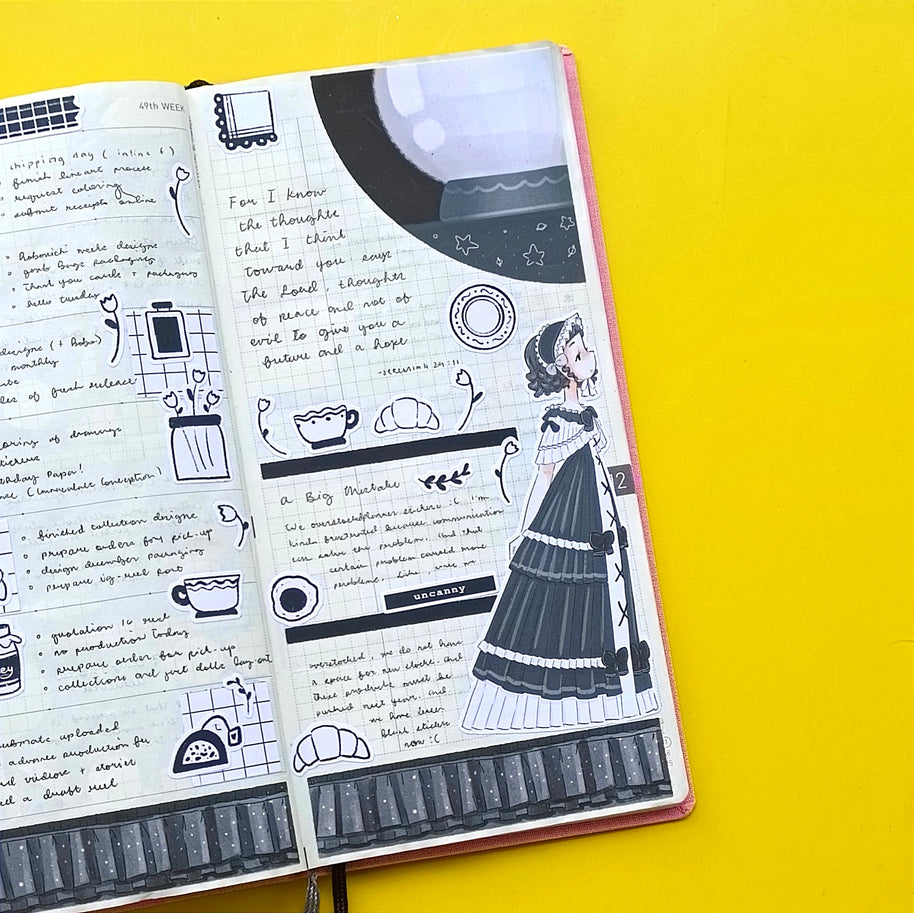 49th WEEK
shipping day (inline 6)
finish lineart process
request coloring
submit receipts online
designs
goab bags packaging
Thank you cards + packaging
hello tuesday
designs (+ Hobo)
monthly
of fresh release
of drawings
Birthday Papa!
(Immaculate Conception)
finished collection designs
prepare orders for pick-up
design december packaging
prepare ig-reel post
quotation is sent
no production today
prepare order for pick-up
collections and just dolls lay-out
uploaded
advance production for
videos + stories
a draft reel
For I know
the thoughts
that I think
toward you says
The Lord, thoughts
of peace and not of
evil to give you a
future and a hope
29:11
2
a Big Mistake
We overstocked planner stickers :( I'm
kinda frustrated because communication
can solve the problem. And that
certain problem caused more
problems. Like, make me
uncanny
overstocked, we do not have
a space for new stocks. And
these products must be
pushed next year. And
we have lesser
blank stickers
now :(